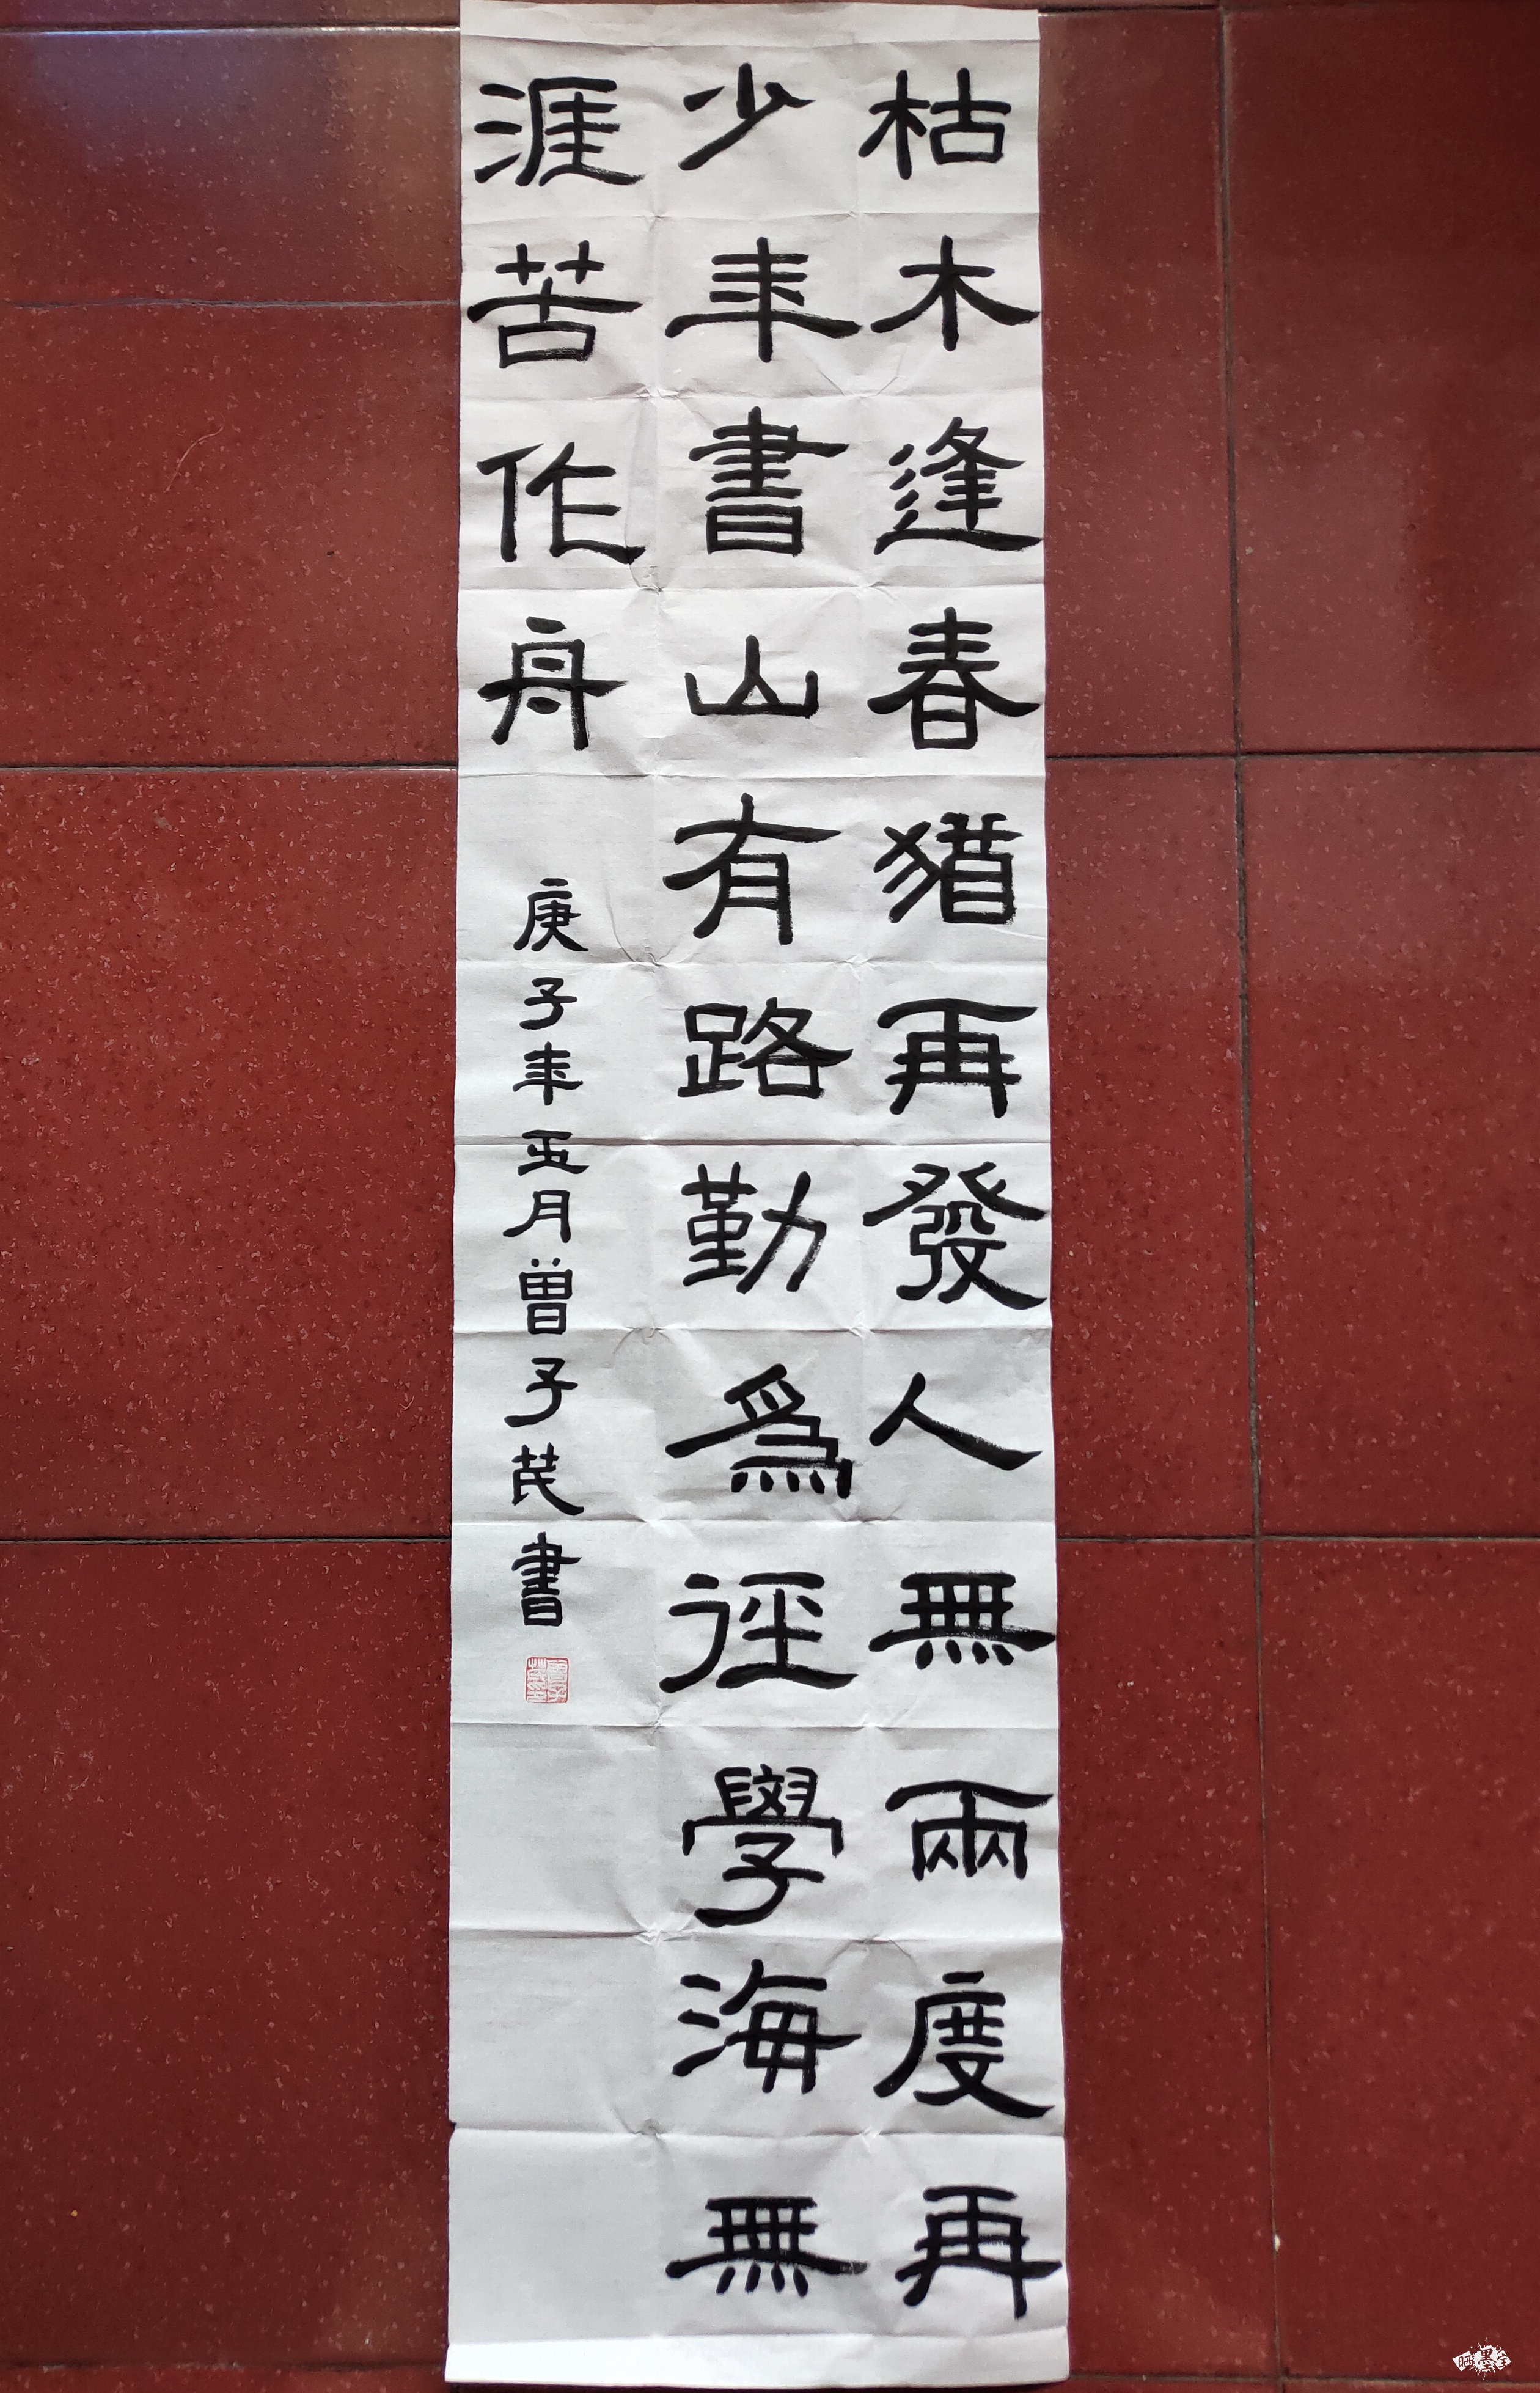 枯木逢春猶再發人無兩度再
少年書山有路勤爲徑學海無
涯苦作舟
庚子年五月曾子書
晒墨宝